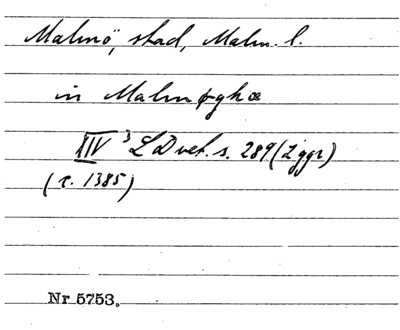 Malmö, stad, Malm. l.
in Malmøghæ
XIV 3 LDvet. s. 289 (2 ggr)
(c. 1385)
Nr 5753.